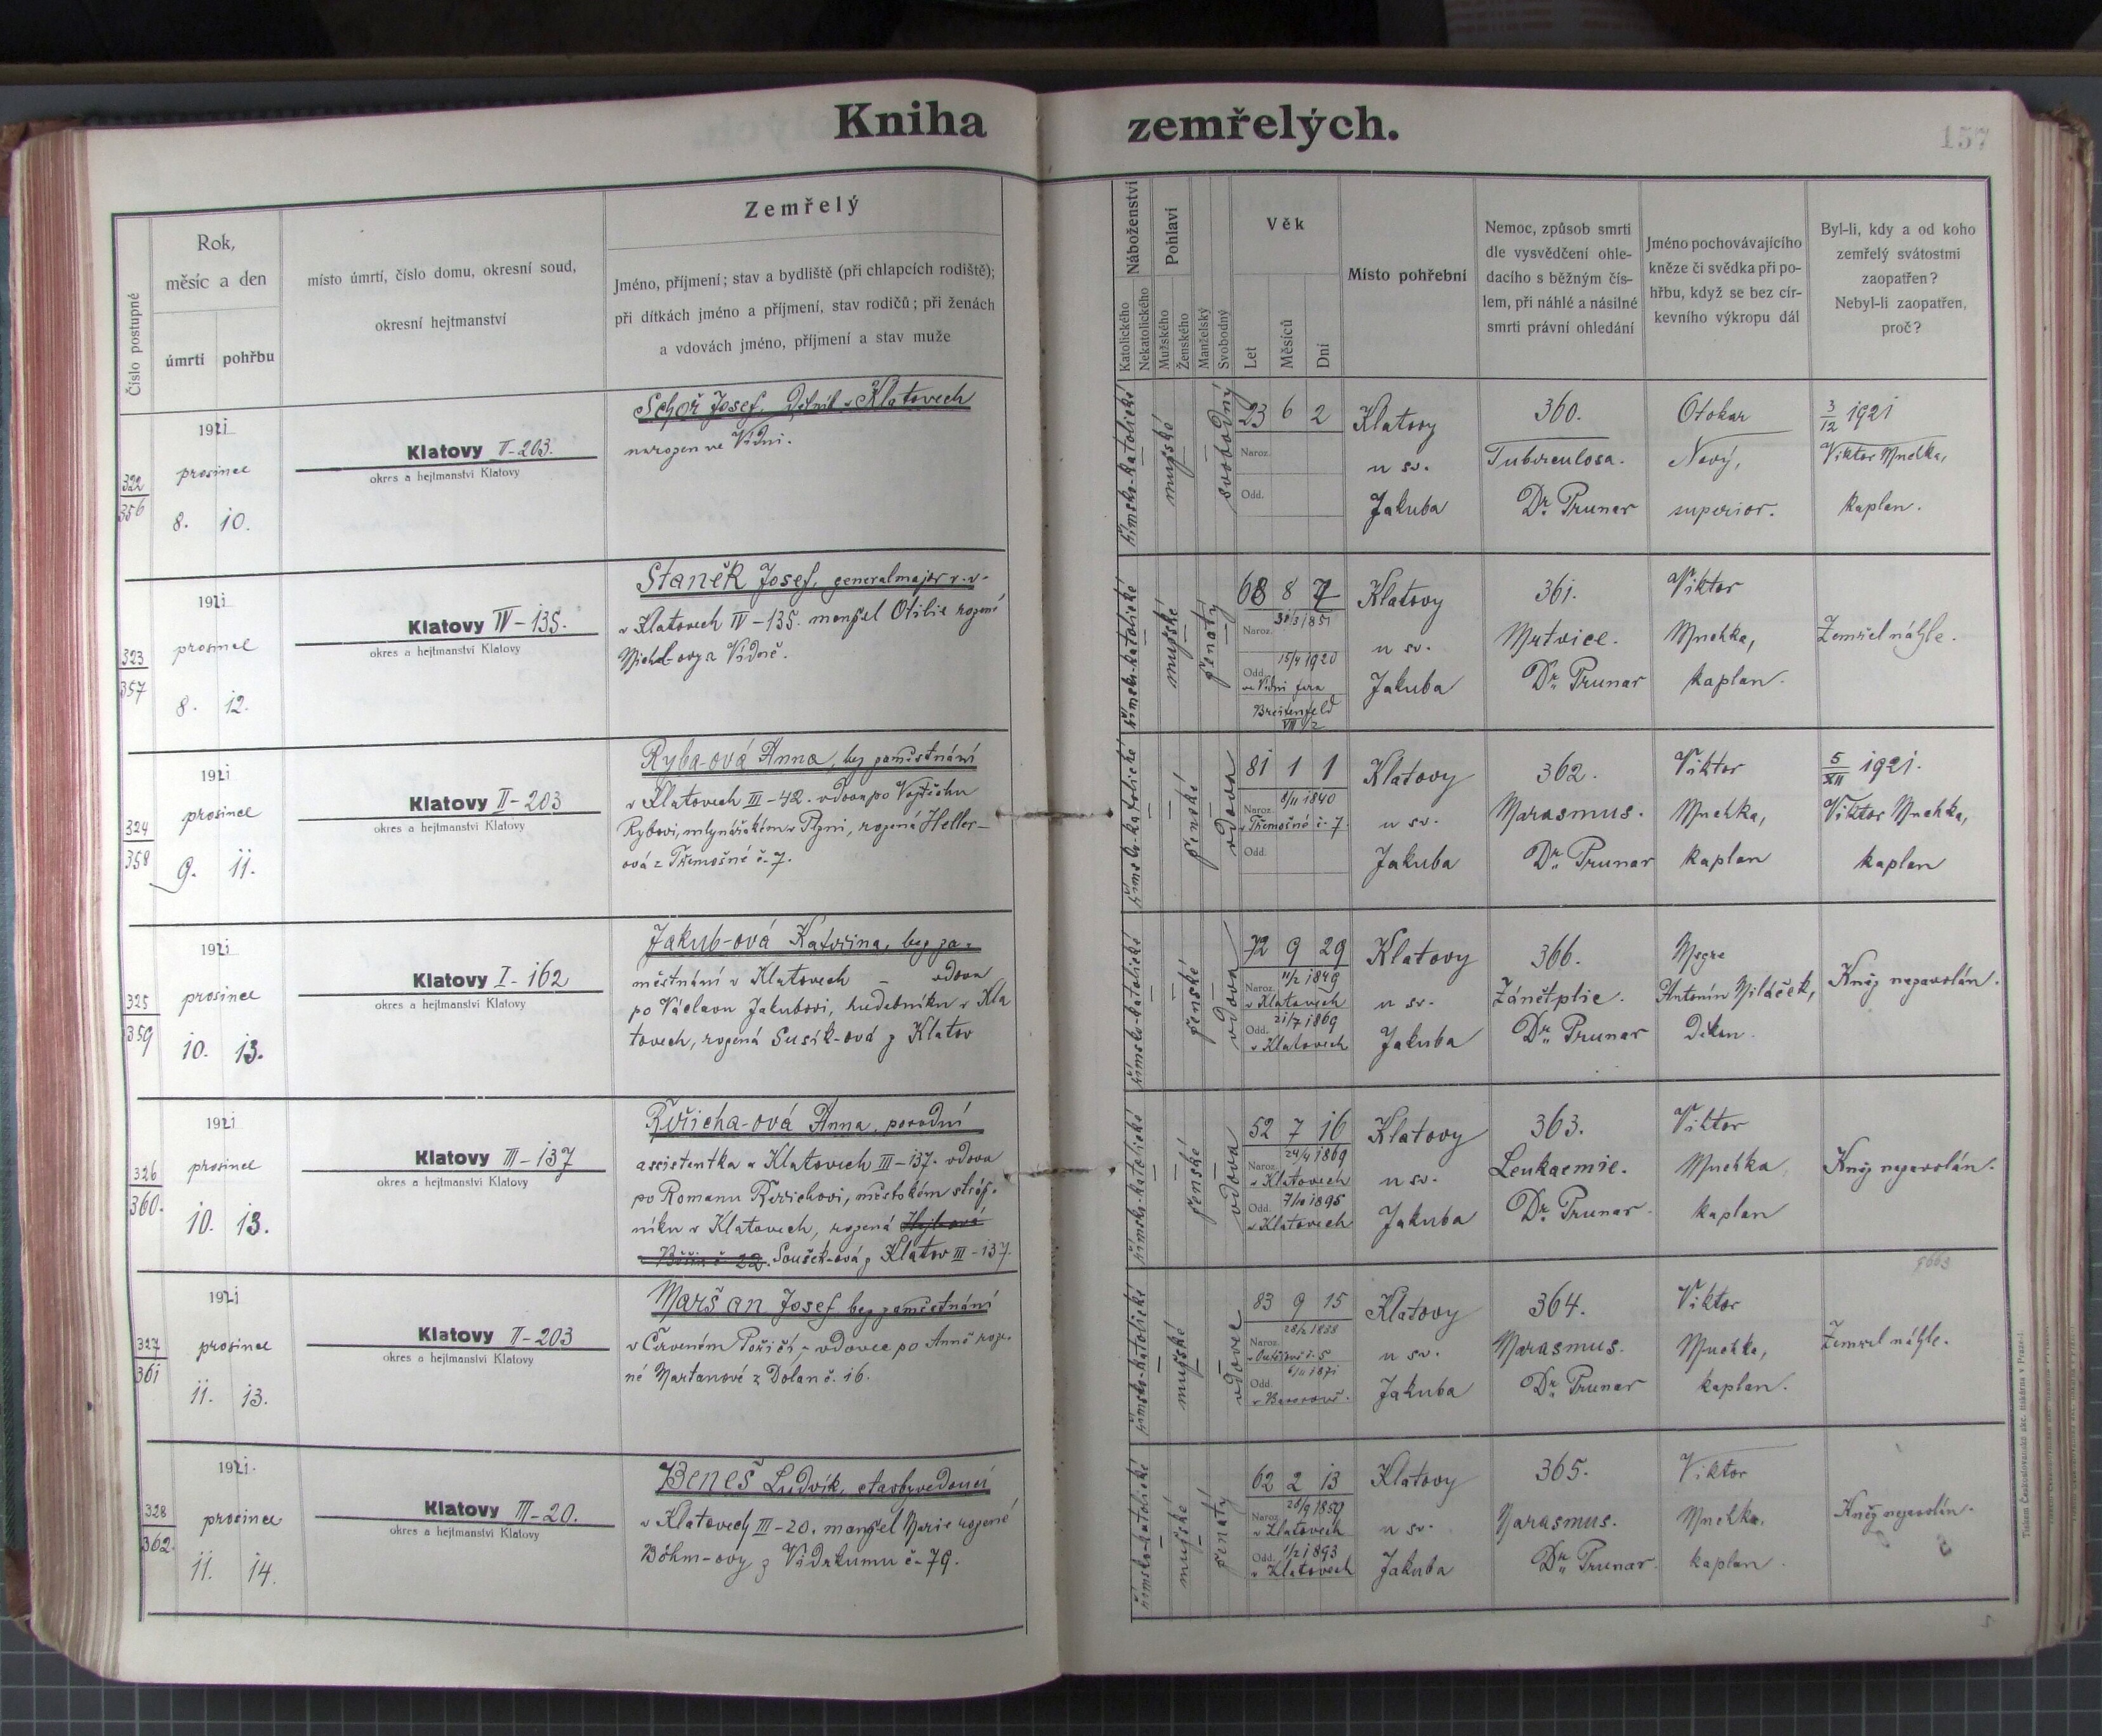 Kniha zemřelých.
157
Číslo postupné
Rok,
měsíc a den
úmrtí
pohřbu
místo úmrtí, číslo domu, okresní soud,
okresní hejtmanství
Zemřelý
Jméno, příjmení; stav a bydliště (při chlapcích rodiště);
při dítkách jméno a příjmení, stav rodičů; při ženách
a vdovách jméno, příjmení a stav muže
Náboženství
Katolického
Nekatolického
Pohlaví
Mužského
Ženského
Manželský
Svobodný
Věk
Let
Měsíců
Dní
Místo pohřební
Nemoc, způsob smrti
dle vysvědčení ohle-
dacího s běžným čís-
lem, při náhlé a násilné
smrti právní ohledání
Jméno pochovávajícího
kněze či svědka při po-
hřbu, když se bez cír-
kevního výkropu dál
Byl-li, kdy a od koho
zemřelý svátostmi
zaopatřen?
Nebyl-li zaopatřen,
proč?
322
356
1921
prosinec
8. 10.
Klatovy II-203.
okres a hejtmanství Klatovy
Josef, Dělník v Klatovech
narozen ve Vídni.
římsko-katolické
mužské
svobodný
23 6 2
Naroz.
Odd.
Klatovy
u sv.
Jakuba
360.
Tuberculosa.
Dr. Prunar
Otokar
Nový,
superior.
3/12 1921
Viktor Muchka,
kaplan.
323
357
1921
prosinec
8. 12.
Klatovy IV-135.
okres a hejtmanství Klatovy
Staněk Josef, generalmajor v.v.
v Klatovech IV-135. manžel Otilie rozené
římsko-katolické
mužské
ženatý
68 8 7
Naroz. 31/3 1851
Odd. 15/4 1920
ve Vídni fara
Breitenfeld
VIII/2
Klatovy
u sv.
Jakuba
361.
Mrtvice.
Dr. Prunar
Viktor
Muchka,
kaplan.
Zemřel náhle.
324
358
1921
prosinec
9. 11.
Klatovy II-203
okres a hejtmanství Klatovy
Ryba-ová Anna, bez zaměstnání
v Klatovech III-42. vdova po Vojtěchu
Rybovi, mlynářském v Plzni, rozená Heller-
ová z Třemošné č. 7.
římsko-katolické
ženské
vdova
81 1 1
Naroz. 8/11 1840
v Třemošné č. 7.
Odd.
Klatovy
u sv.
Jakuba
362.
Marasmus.
Dr. Prunar
Viktor
Muchka,
kaplan
5/XII 1921.
Viktor Muchka,
kaplan
325
359
1921
prosinec
10. 13.
Klatovy I-162
okres a hejtmanství Klatovy
Jakub-ová Kateřina, bez za-
městnání v Klatovech – vdova
po Václavu Jakubovi, hudebníku v Kla
tovech, rozená Susík-ová z Klatov
římsko-katolické
ženské
vdova
72 9 29
Naroz. 11/2 1849
v Klatovech
Odd. 21/7 1869
v Klatovech
Klatovy
u sv.
Jakuba
366.
Zánět plic.
Dr. Prunar
Msgre
Antonín Miláček,
Děkan.
Kněz nezavolán.
326
360.
1921
prosinec
10. 13.
Klatovy III-137
okres a hejtmanství Klatovy
Řeřicha-ová Anna, porodní
assistentka v Klatovech III-137. vdova
po Romanu Řeřichovi, městském stráž-
níku v Klatovech, rozená
Souček-ová z Klatov III-137.
římsko-katolické
ženské
vdova
52 7 16
Naroz. 24/4 1869
v Klatovech
Odd. 7/10 1895
v Klatovech
Klatovy
u sv.
Jakuba
363.
Leukaemie.
Dr. Prunar.
Viktor
Muchka,
kaplan
Kněz nezavolán.
327
361
1921
prosinec
11. 13.
Klatovy II-203
okres a hejtmanství Klatovy
Maršan Josef bez zaměstnání
v Červeném Poříčí, vdovec po Anně roze-
né Martanové z Dolan č. 16.
římsko-katolické
mužské
vdovec
83 9 15
Naroz.
Odd. 6/11 1871
Klatovy
u sv.
Jakuba
364.
Marasmus.
Dr. Prunar
Viktor
Muchka,
kaplan.
Zemřel náhle.
328
362.
1921.
prosinec
11. 14.
Klatovy III-20.
okres a hejtmanství Klatovy
Beneš Ludvík, stavbyvedoucí
v Klatovech III-20. manžel Marie rozené
Böhm-ovy z č. 79.
římsko-katolické
mužské
ženatý
62 2 13
Naroz. 28/9 1859
v Klatovech
Odd. 1/2 1893
v Klatovech
Klatovy
u sv.
Jakuba
365.
Marasmus.
Dr. Prunar.
Viktor
Muchka.
kaplan.
Kněz nezavolán.